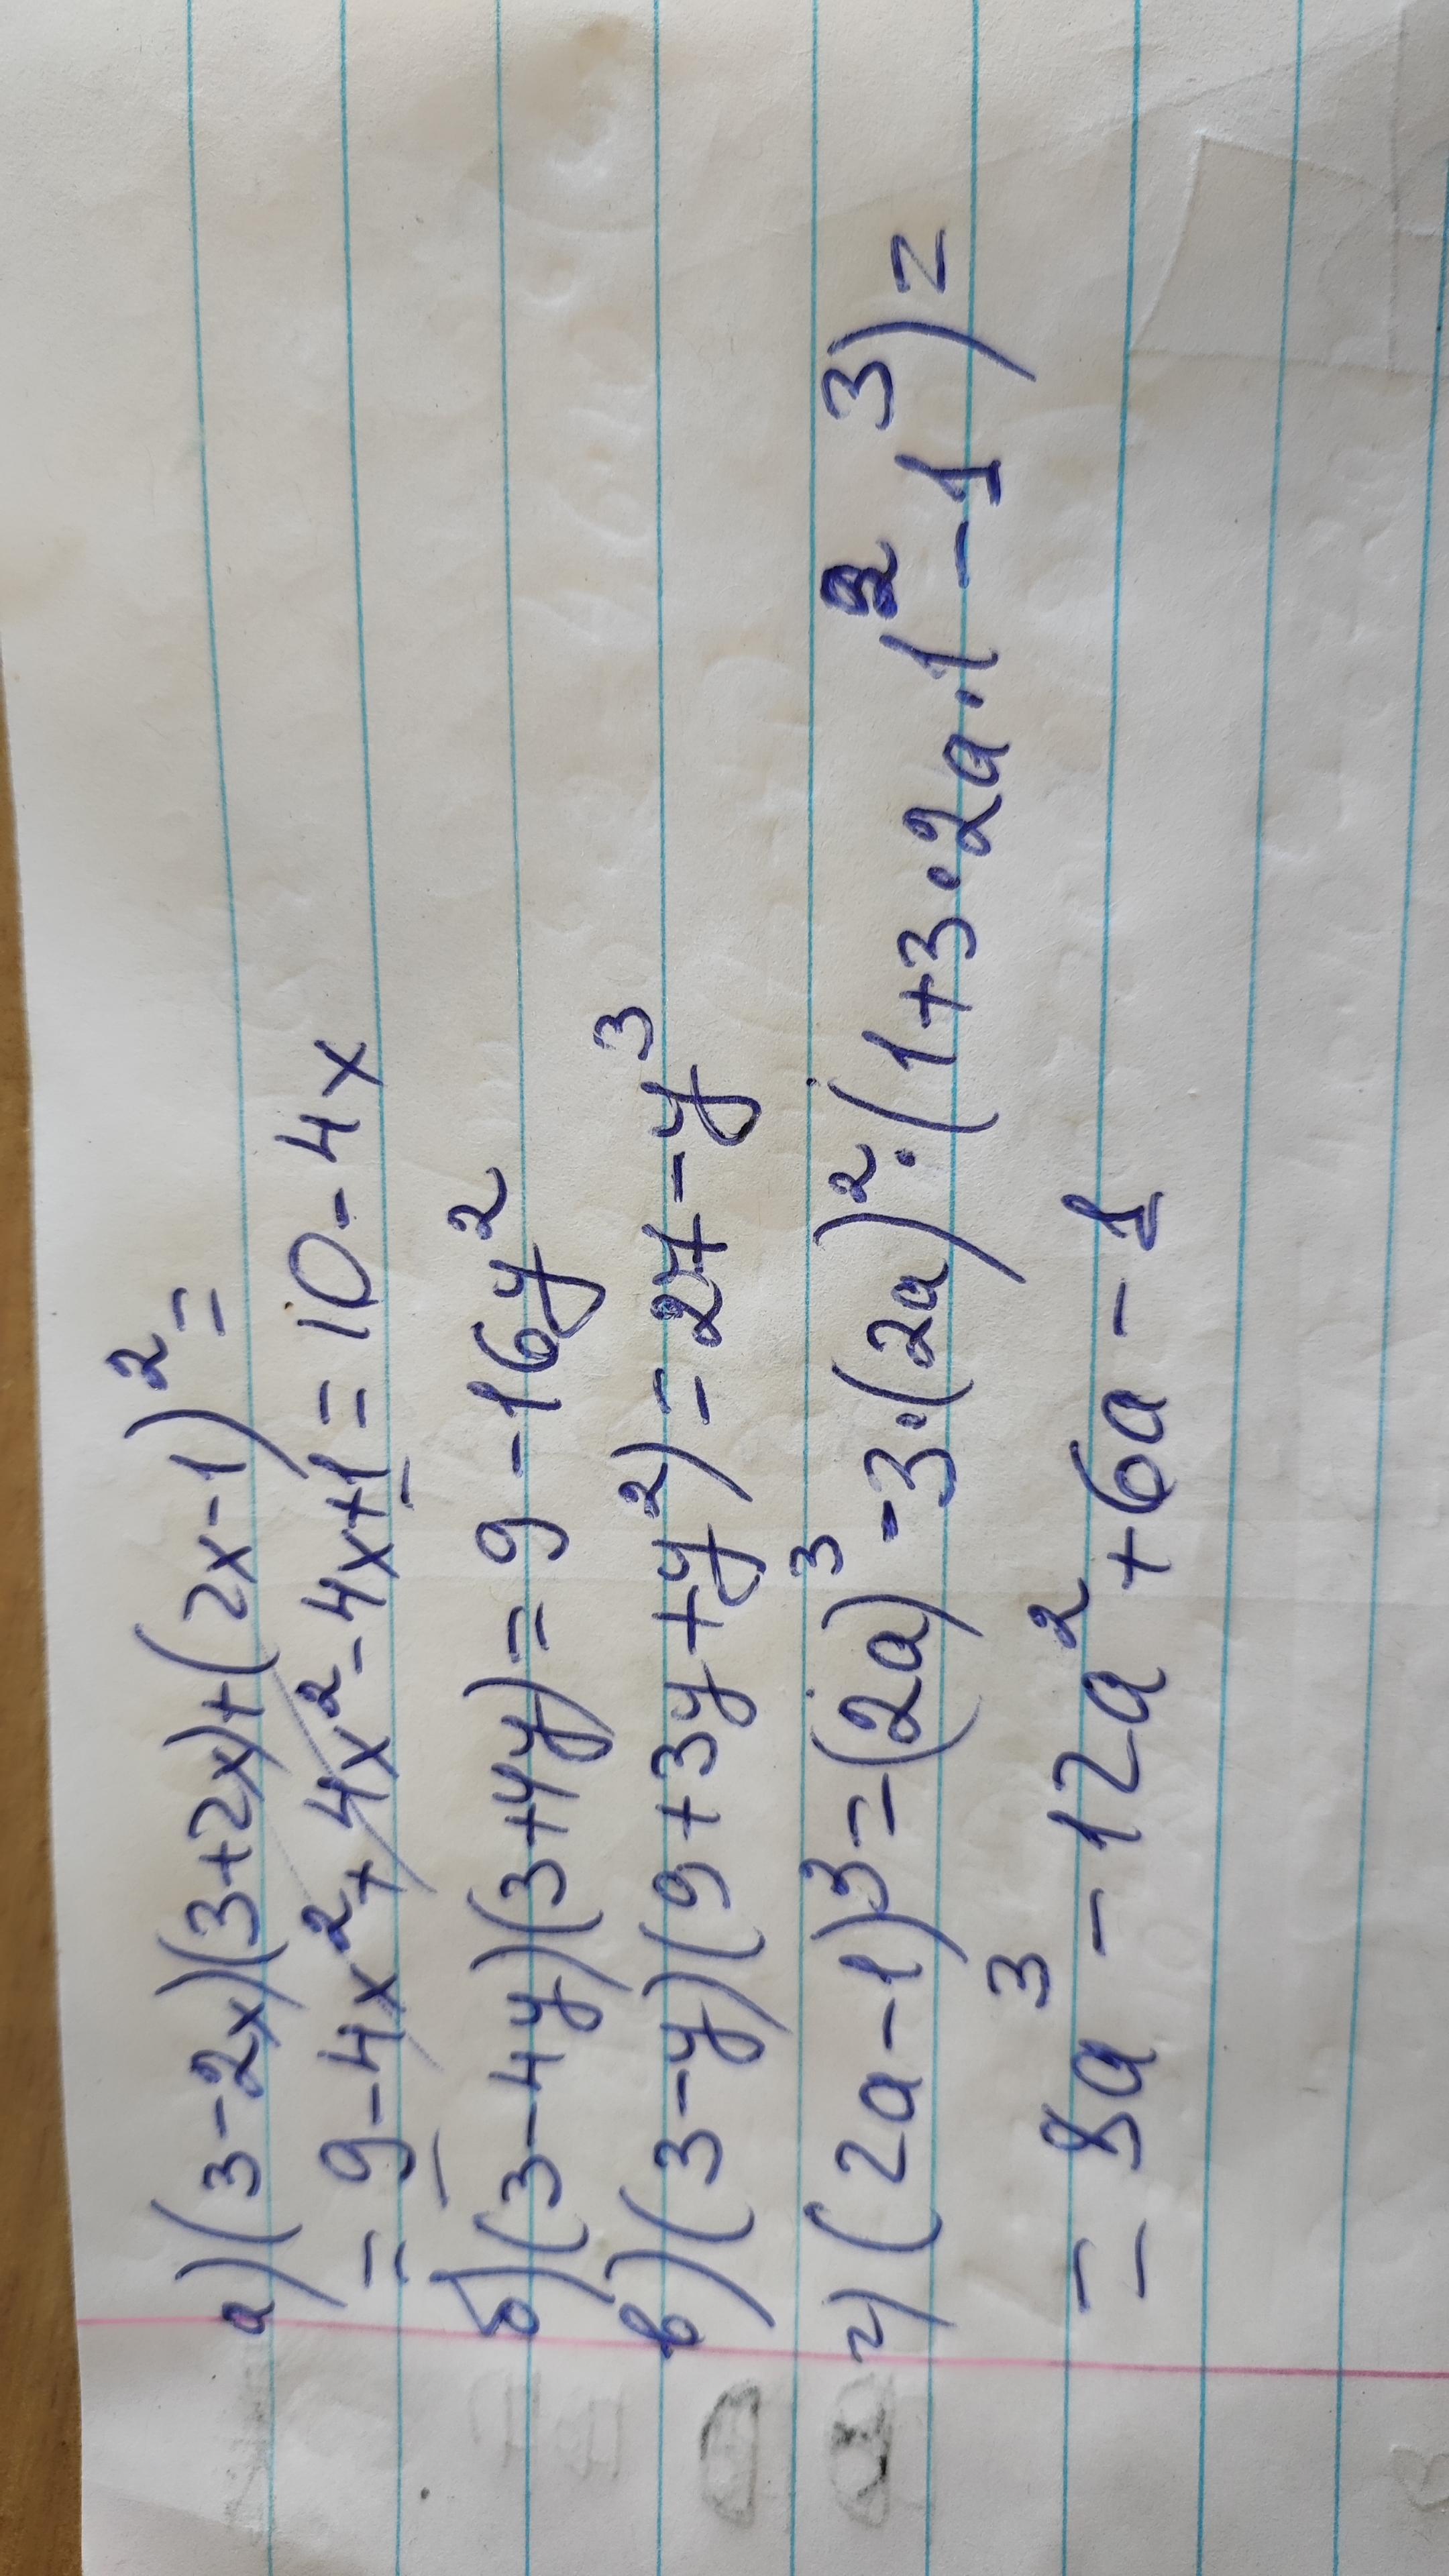 а) (3-2x)(3+2x)+(2x-1)² =
= 9-4x²+4x²-4x+1 = 10-4x
б) (3-4y)(3+4y) = 9-16y²
в) (3-y)(9+3y+y²) = 27-y³
г) (2a-1)³=(2a)³-3·(2a)²·(1+3·2a·1²-1³)=
= 8a³-12a²+6a-1